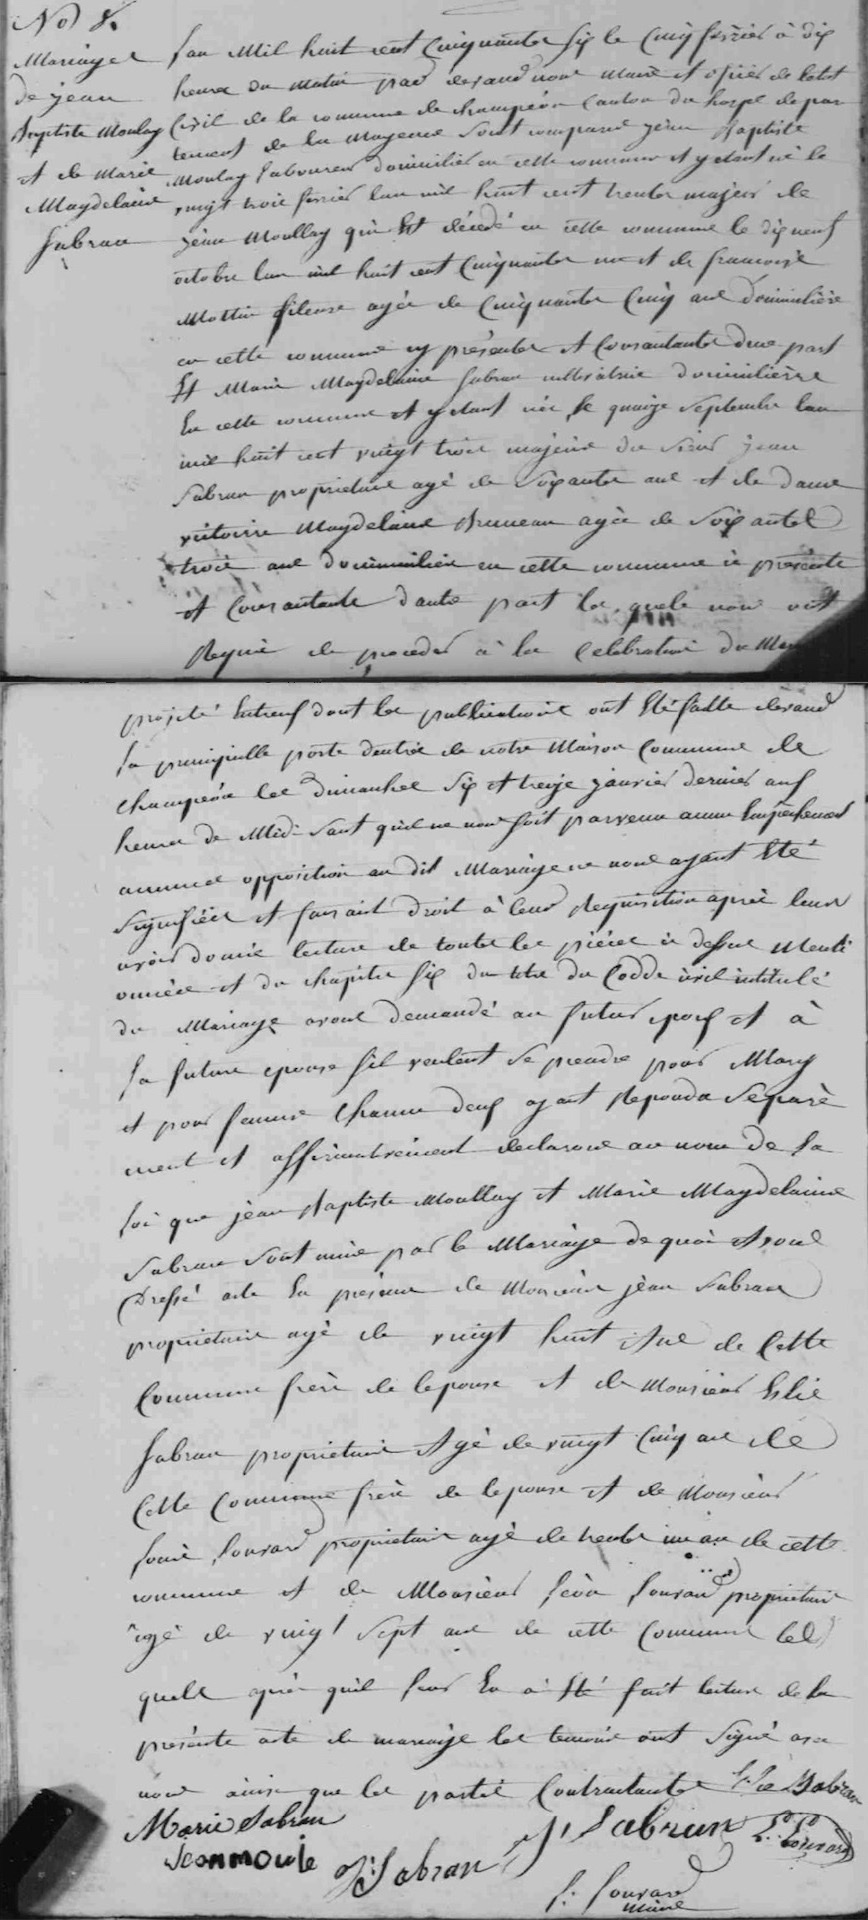 No 8.
Mariage
de jean
Baptiste Moulay
et de Marie
Magdelaine
Sabran
lan Mil huit cent Cinquante Six le Cinq février à dix
heures du Matin par devant nous Maire et officier de letat
Civil de la commune de champéon Canton du horps depar
tement de la Mayenne Sont comparu jean Baptiste
Moulay laboureur domicilier en cette commune et y etant né le
vingt trois février lan mil huit cent trente majeur de
jean Moullay qui Est décédé en cette commune le dix neuf
octobre lan mil huit cent Cinquante un et de francoise
Mottin fileuse agée de Cinquante Cinq ans Domicilière
en cette commune cy présente et Consentante dune part
Et Marie Magdelaine Sabran cultivatrice domicilière
En cette commune et y etant née le quinze Septembre lan
mil huit cent vingt trois majeure du sieur jean
Sabran propriétaire agé de Soixante ans et de dame
victoire Magdelaine Bruneau agée de Soixante
trois ans domicilier en cette commune ci présente
et Consentante dautre part les quels nous ont
Requis de proceder à la Celebration du
projeté Entreux dont les publications ont Eté faitte devant
la principalle porte dentrée de notre Maison Commune de
champéon les dimanches Six et treize janvier dernier aux
heures de Midi Sant quil ne nous soit parvenu aucun Empechement
aucunes opposition au dit Mariage ne nous ayant Eté
Signifiée et faisant droit à leur Requisition après leur
avoir donné lecture de toutes les pièces ci dessus Menti
onnées et du chapitre Six du titre du Codde civil intitulé
du Mariage avons demandé au futur epoux et à
la future epouse sil veulent se prendre pour Mary
et pour femme Chacun deux ayant Repondu Séparé
ment et affirmativement declarons au nom de la
loi que jean Baptiste Moullay et Marie Magdelaine
Sabran Sont unie par le Mariage de quoi Avons
Dressé acte En présence de Monsieur jean Sabran
propriétaire agé de vingt huit Ans de Cette
Commune frère de lepouse et de Monsieur Elie
Sabran propriétaire Agé de vingt Cinq ans de
Cette Commune frère de lepouse et de Monsieur
louis Louvard propriétaire agé de trente un an de cette
commune et de Monsieur léon Louvard propriétaire
agé de vingt Sept ans de cette Commune les
quels après quil leur En a Eté fait lecture de la
présente acte de mariage les temoins ont Signé avec
nous ainsi que les partie Contractantes Elie Sabran
Marie Sabran
J Sabran
L. Louvard
Jean moule
J. Sabran
L. Louvard
Maire